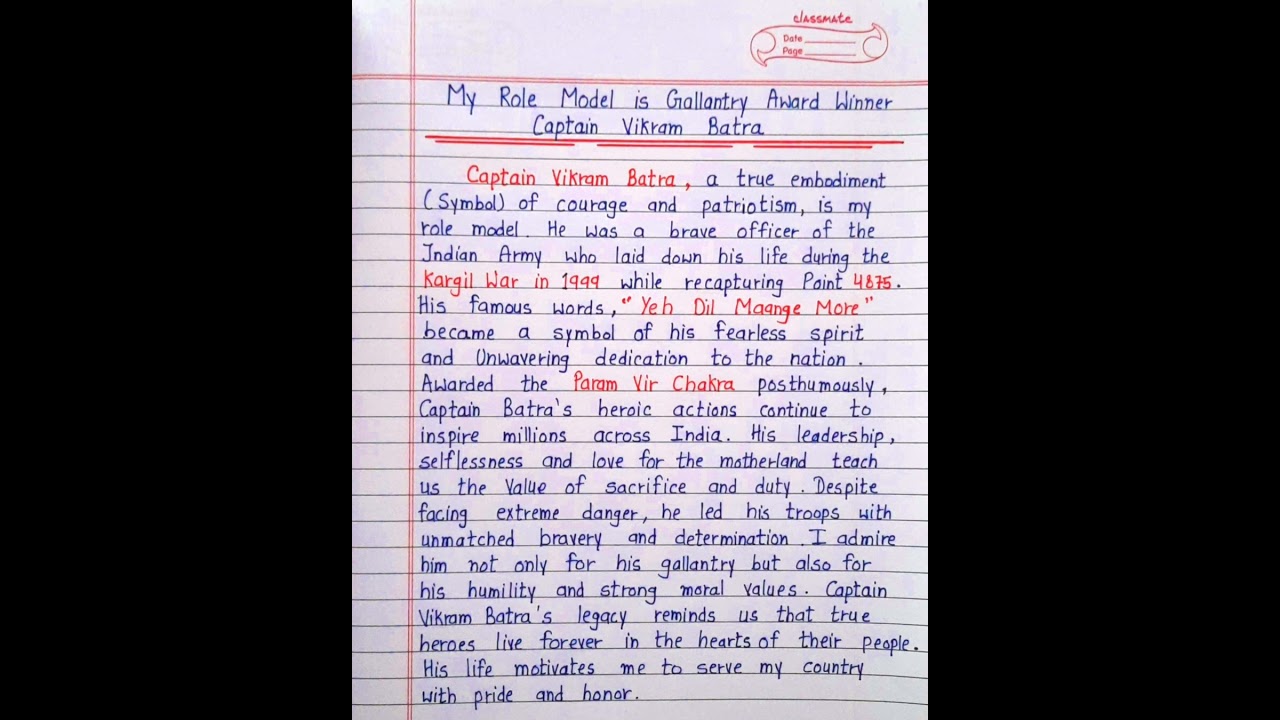 classmate
Date
Page
My Role Model is Gallantry Award Winner
Captain Vikram Batra
Captain Vikram Batra, a true embodiment
(Symbol) of courage and patriotism, is my
role model. He was a brave officer of the
Indian Army who laid down his life during the
Kargil War in 1999 while recapturing Point 4875.
His famous words, "Yeh Dil Maange More"
became a symbol of his fearless spirit
and Unwavering dedication to the nation.
Awarded the Param Vir Chakra posthumously,
Captain Batra's heroic actions continue to
inspire millions across India. His leadership,
selflessness and love for the motherland teach
us the Value of sacrifice and duty. Despite
facing extreme danger, he led his troops with
unmatched bravery and determination. I admire
him not only for his gallantry but also for
his humility and strong moral values. Captain
Vikram Batra's legacy reminds us that true
heroes live forever in the hearts of their people.
His life motivates me to serve my country
with pride and honor.